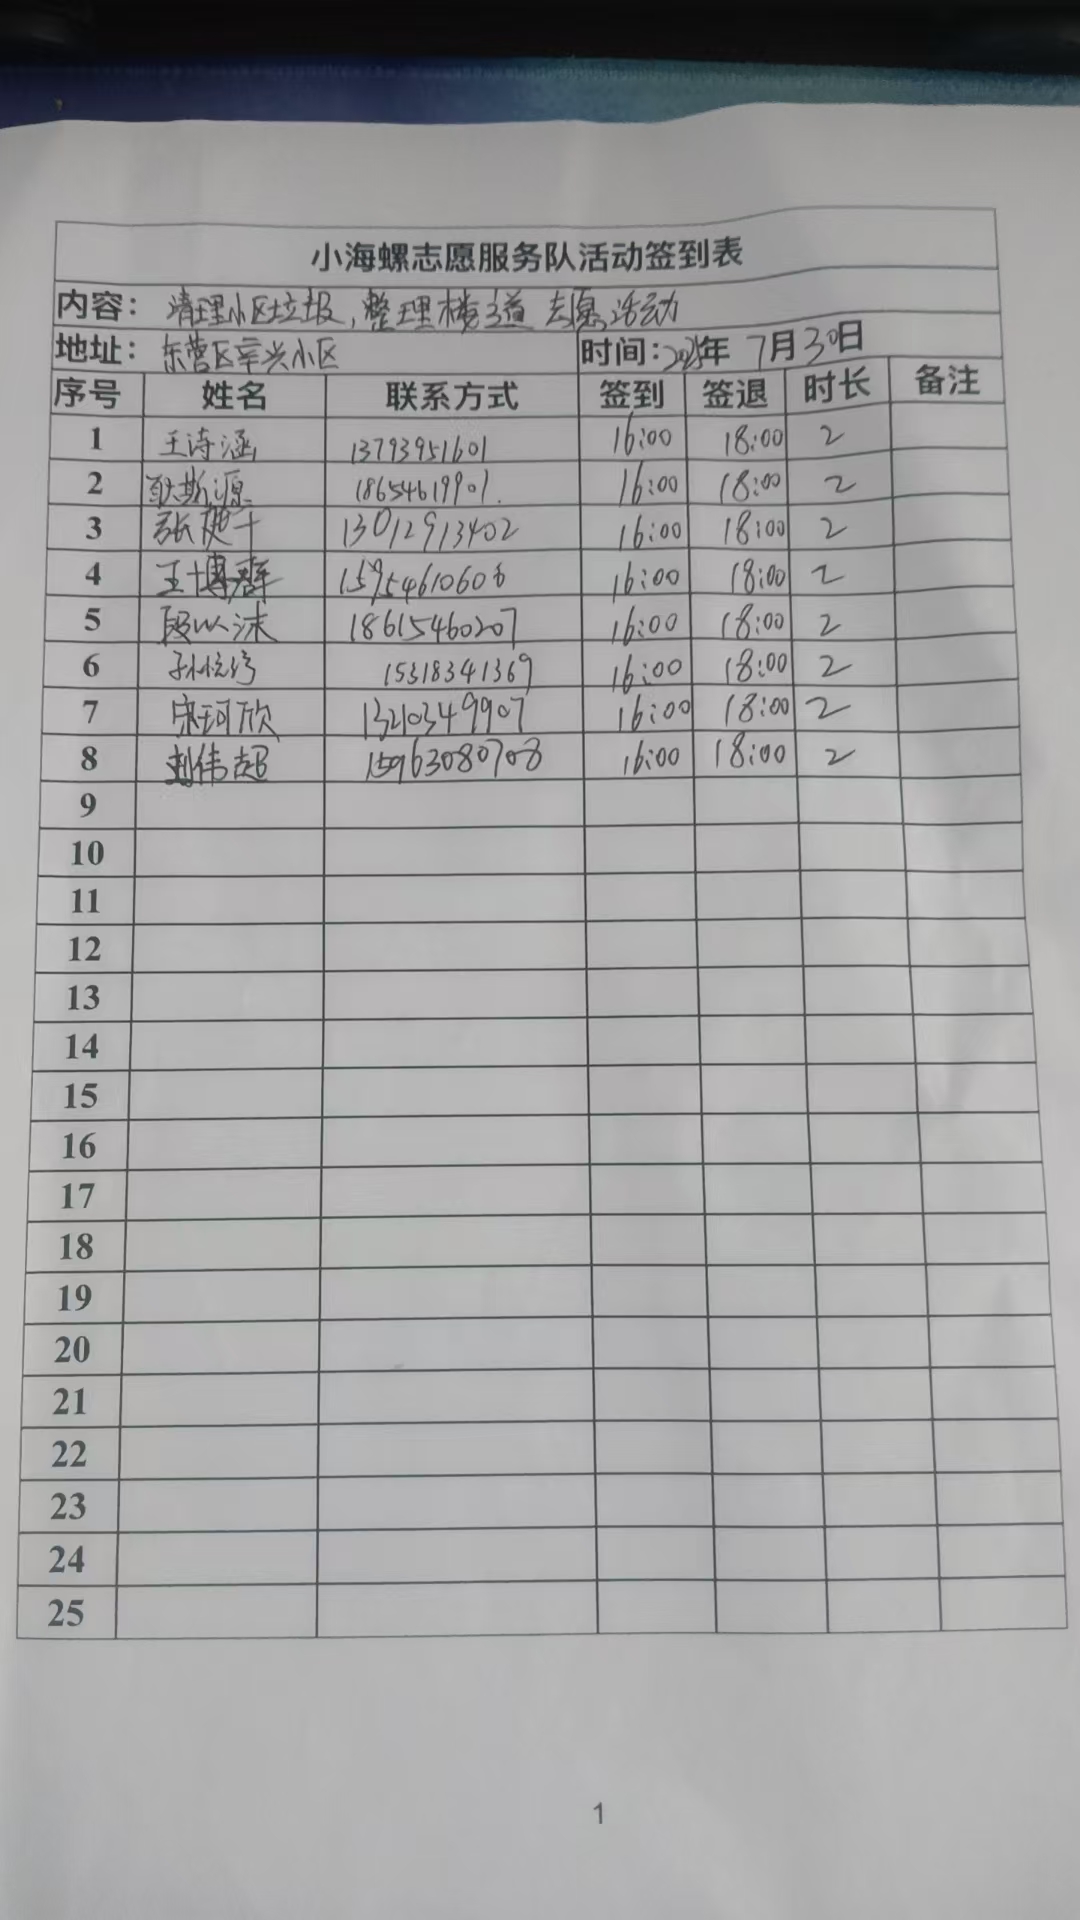 小海螺志愿服务队活动签到表
内容： 清理小区垃圾，整理楼道 志愿活动
地址： 东营区辛兴小区 时间：2025年 7月30日
序号 姓名 联系方式 签到 签退 时长 备注
1 王诗涵 13793951601 16:00 18:00 2
2 耿斯源 18654619901. 16:00 18:00 2
3 张 13012913402 16:00 18:00 2
4 王博群 15954610606 16:00 18:00 2
5 段以沫 18615460207 16:00 18:00 2
6 孙 15318341369 16:00 18:00 2
7 宋珂欣 13210349907 16:00 18:00 2
8 伟超 15963080708 16:00 18:00 2
9
10
11
12
13
14
15
16
17
18
19
20
21
22
23
24
25
1